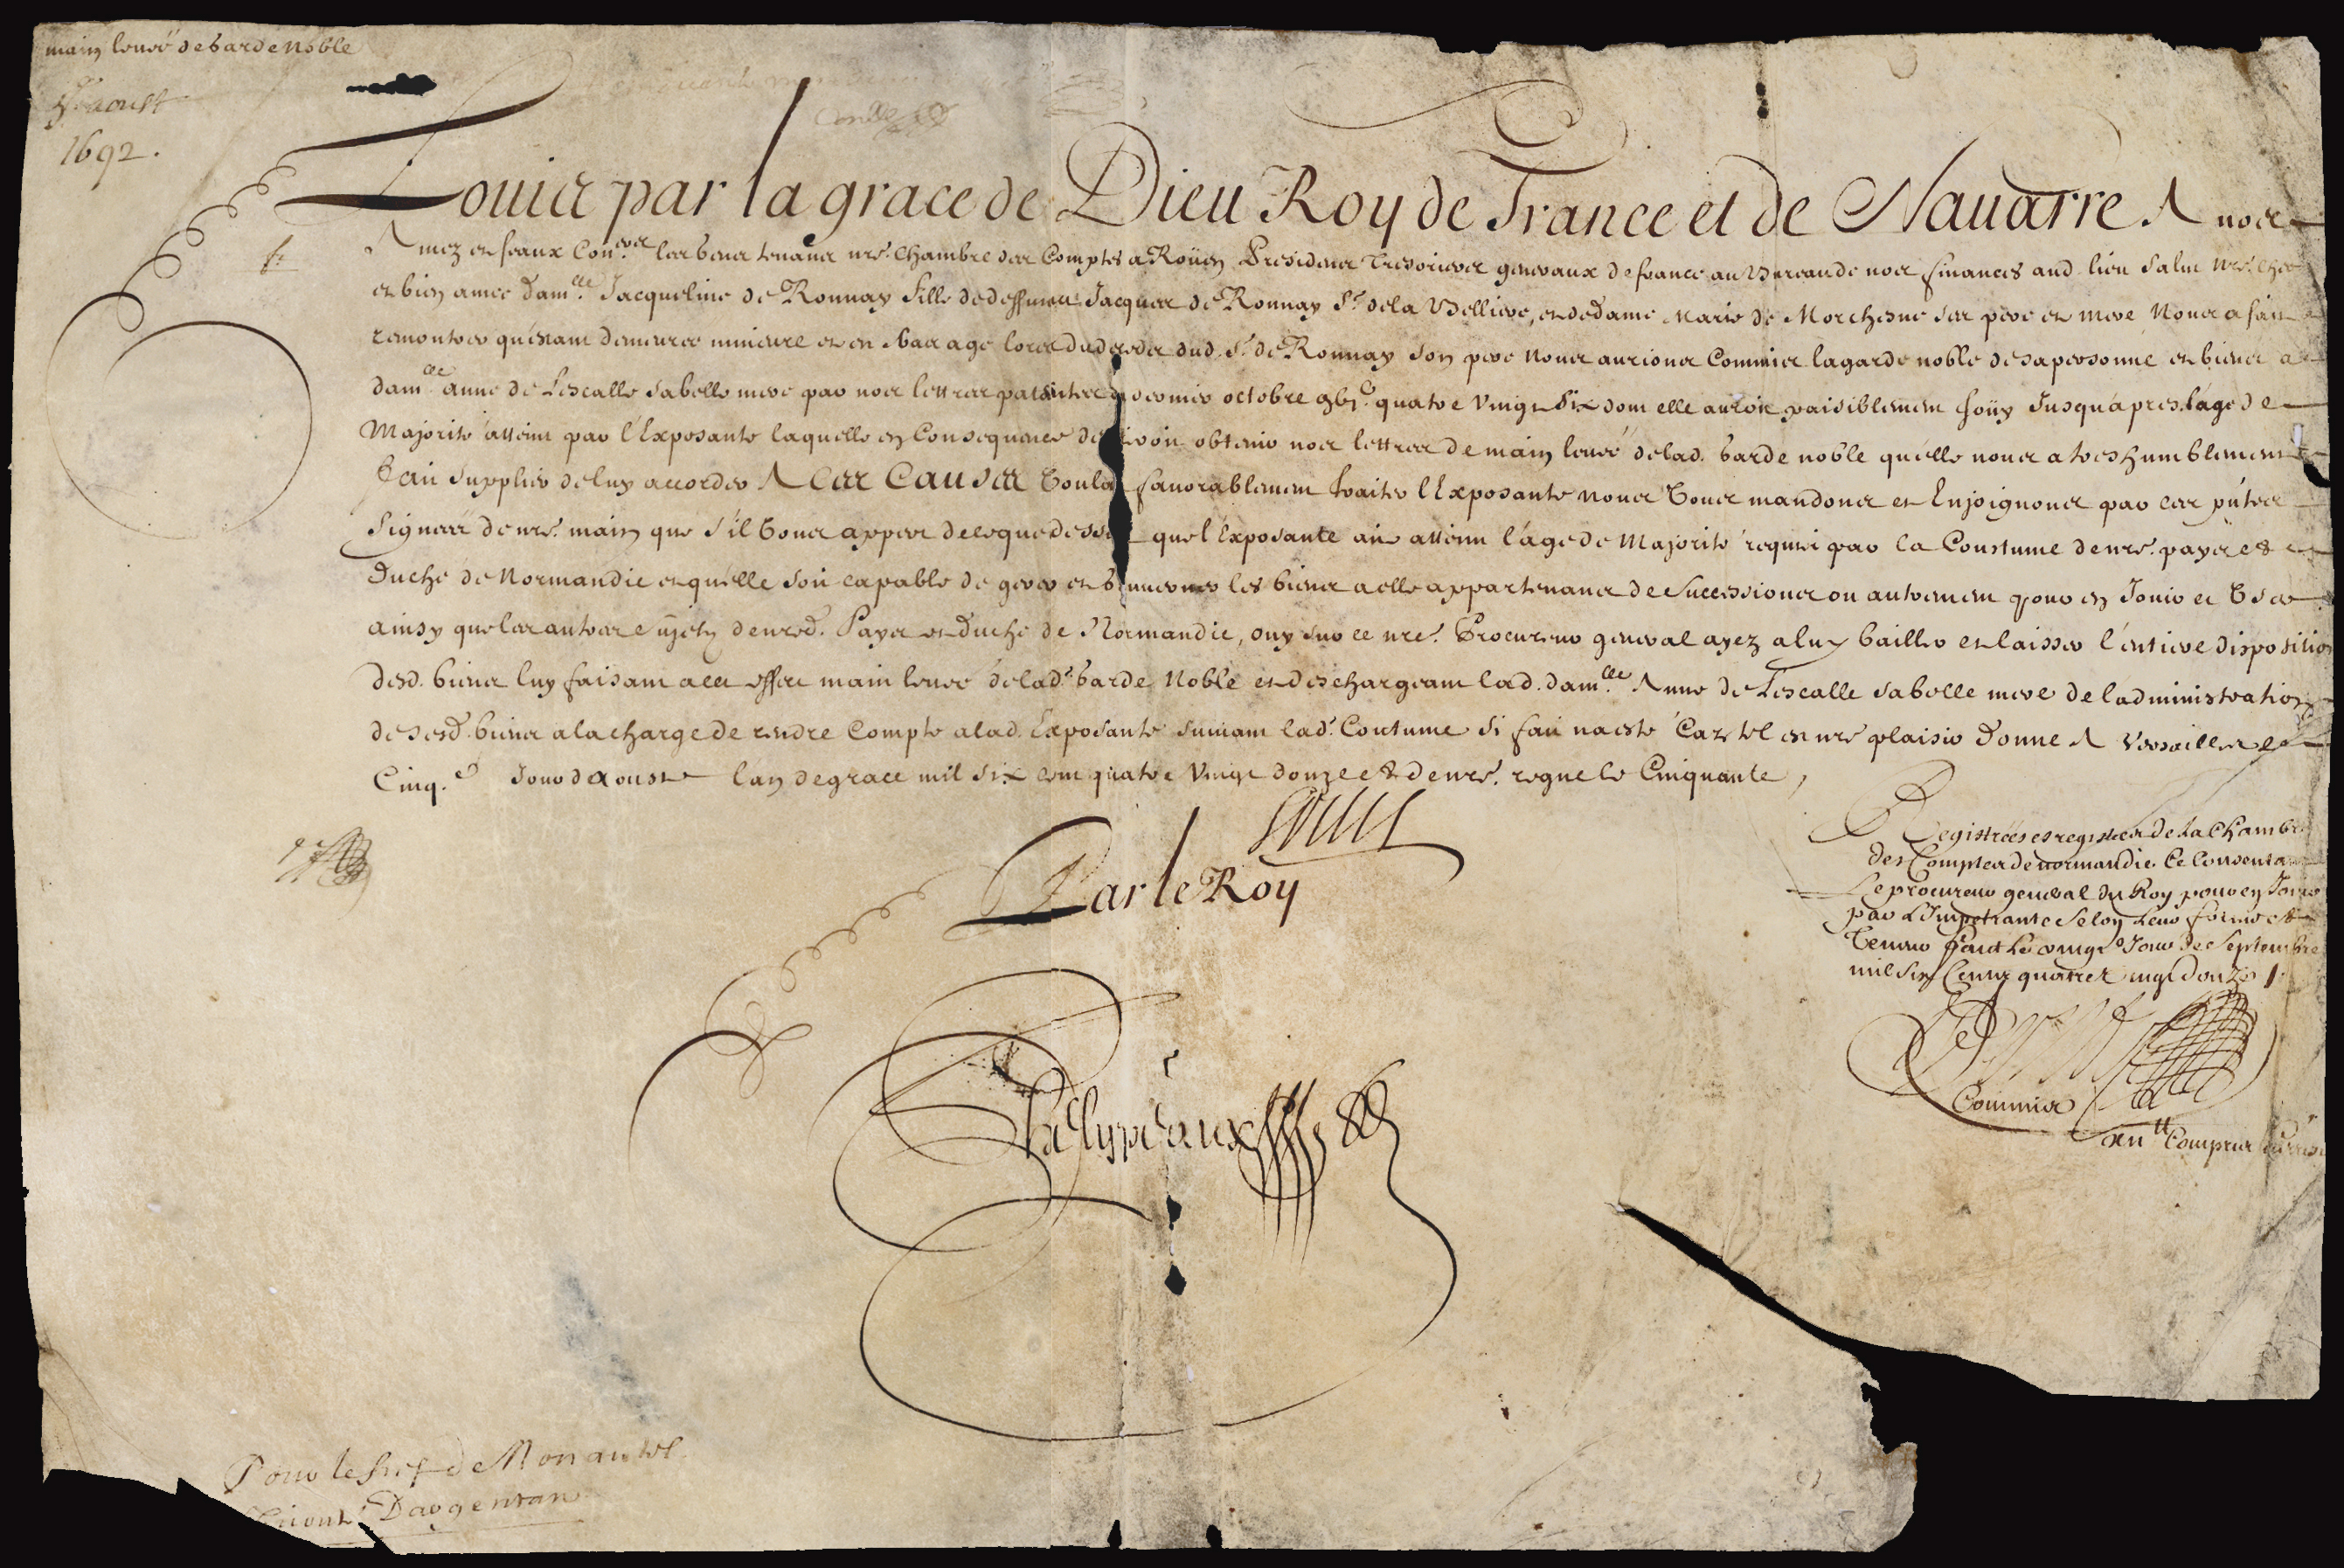 main levée de Garde Noble
5e. aoust
1692.
Louis par la grace de Dieu Roy de France et de Navarre A nos
Amez et feaux Con.ers les gens tenans nre. Chambre des Comptes a Roüen Presidens Tresoriers generaux de france au Bureau de nos finances aud. lieu Salut Nre. chere
et bien amée Dam.lle Jacqueline de Ronnay fille de deffunct Jacques de Ronnay Sr. de la Belliere, et de dame Marie de Morchesne ses pere et mere Nous a fait
remontrer qu'étant demeurée mineure et en bas age lors du deceds dud. Sr. de Ronnay son pere Nous aurions Commis la garde noble de sa personne et biens a
dam.lle anne de Lescalle sa belle mere par nos lettres patentes du dernier octobre gbjc. quatre vingt Six dont elle auroit paisiblement joüy Jusqu'apres l'age de
Majorité atteint par l'Exposante laquelle en Consequence desiroit obtenir nos lettres de main levée de lad. Garde noble qu'elle nous a tres humblement
fait supplier de luy accorder A Ces Causes Voulant favorablement traiter l'Exposante Nous Vous mandons et Enjoignons par ces pntes
Signées de nre. main que s'il Vous appert de ce que dessus que l'Exposante ait atteint l'âge de Majorité requis par la Coustume de nre. pays et
Duché de Normandie et qu'elle soit capable de gerer et gouverner les biens a elle appartenans de Successions ou autrement pour en Jouir et User
ainsy que les autres Sujets de nred. Pays et Duché de Normandie, ouy sur ce nre. Procureur general ayez a luy bailler et laisser l'entiere disposition
desd. biens luy faisant a cet effect main levée de lad. Garde Noble et deschargeant lad. dam.lle Anne de Lescalle sa belle mere de l'administration
de sesd. biens a la charge de rendre Compte a lad. Exposante suivant lad. Coutume Si fait n'a esté Car tel est nre plaisir Donné A Versailles le
Cinq.e Jour d'Aoust l'an de grace mil six cent quatre vingt douze et de nre. regne le Cinquante,
Louis
Par le Roy
Phelypeaux
Registrées es registres de la Chambre
des Comptes de normandie Ce Consentant
Le procureur general du Roy pour en Jouir
par L'Impetrante Selon Leur forme et
Teneur fait Le vingt.e Jour de Septembre
mil Six Cents quatre vingt douze
Commis
Comptes
Pour le fief de Monantel
Vicont. D'argentan